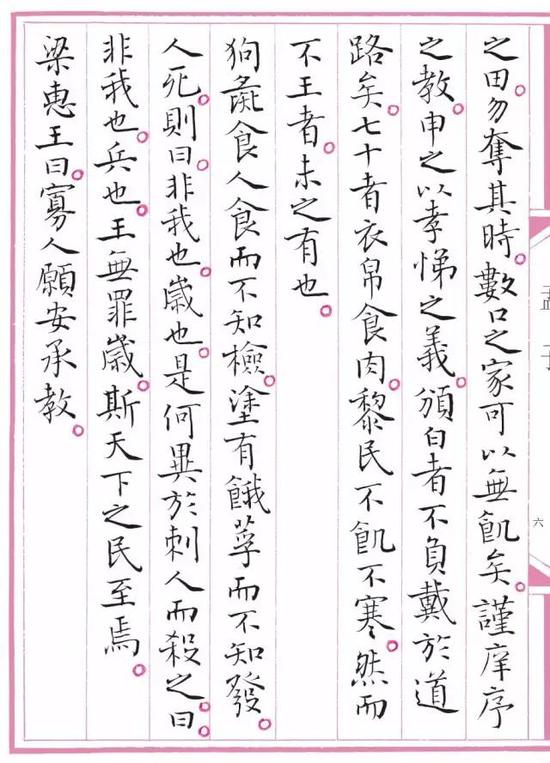 之田勿奪其時。數口之家可以無飢矣。謹庠序
之教。申之以孝悌之義。頒白者不負戴於道
路矣。七十者衣帛食肉。黎民不飢不寒。然而
不王者。未之有也。
狗彘食人食而不知檢。塗有餓莩而不知發。
人死。則曰。非我也。歲也。是何異於刺人而殺之。曰。
非我也。兵也。王無罪歲。斯天下之民至焉。
梁惠王曰。寡人願安承教。
孟子
六